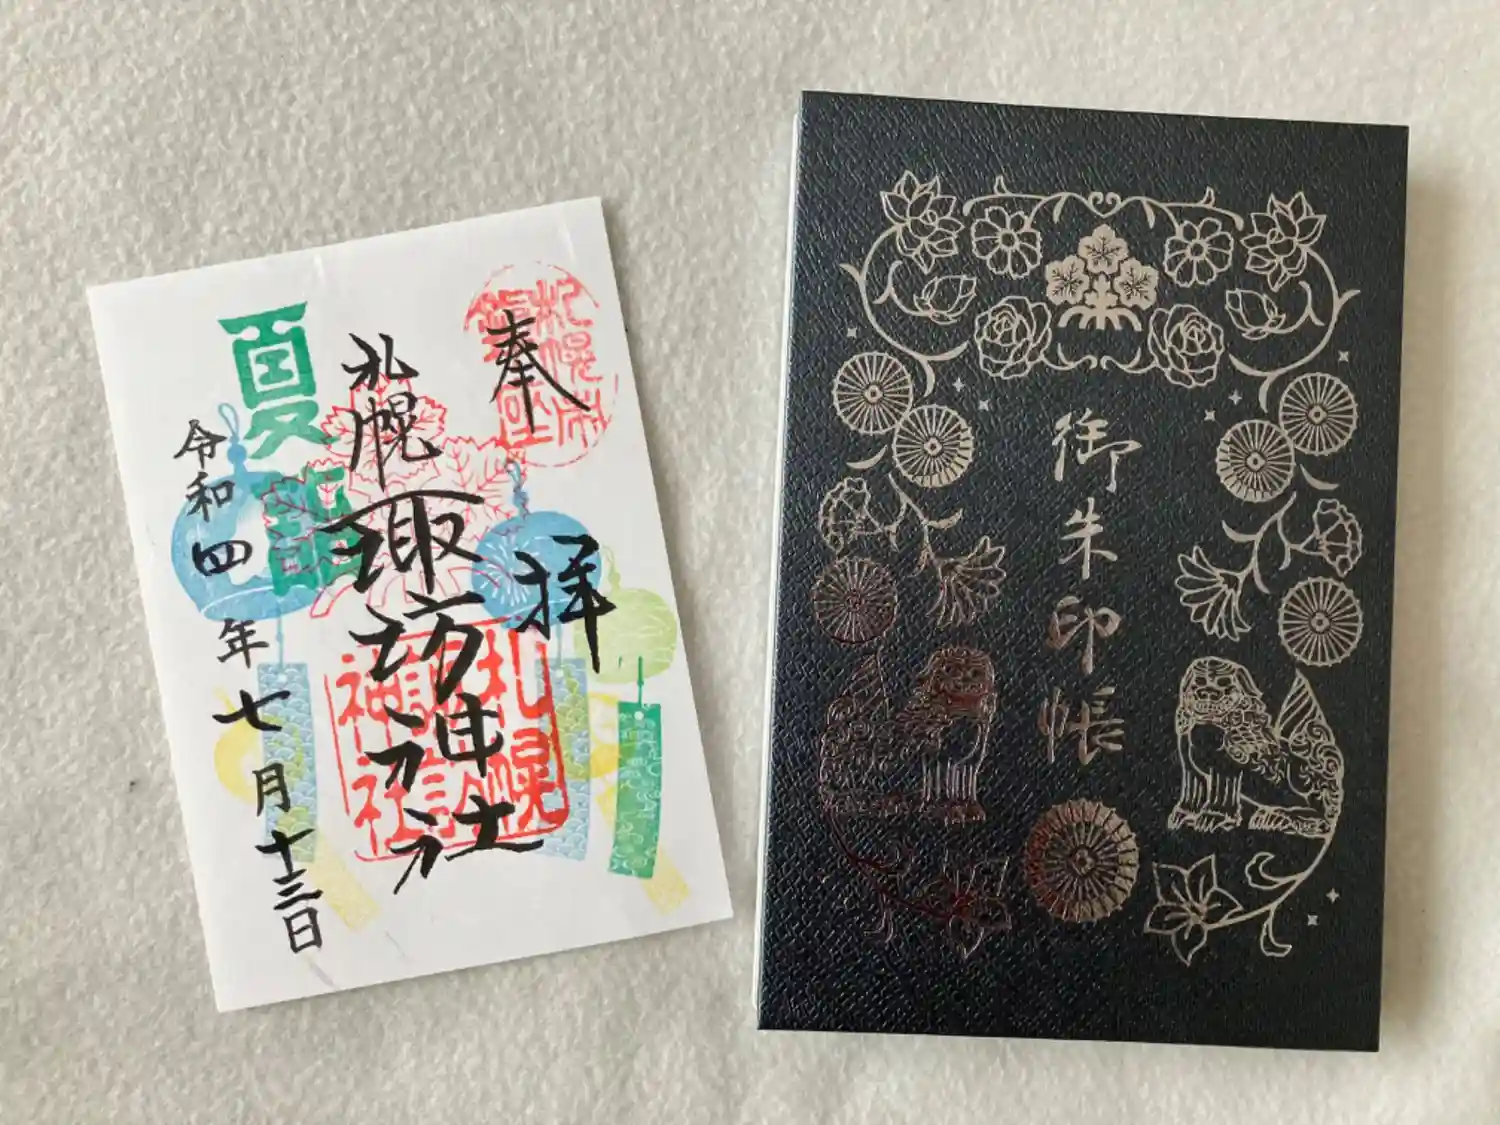 奉拝
札幌諏訪神社
夏詣
令和四年七月十三日
札幌諏訪神社
御朱印帳